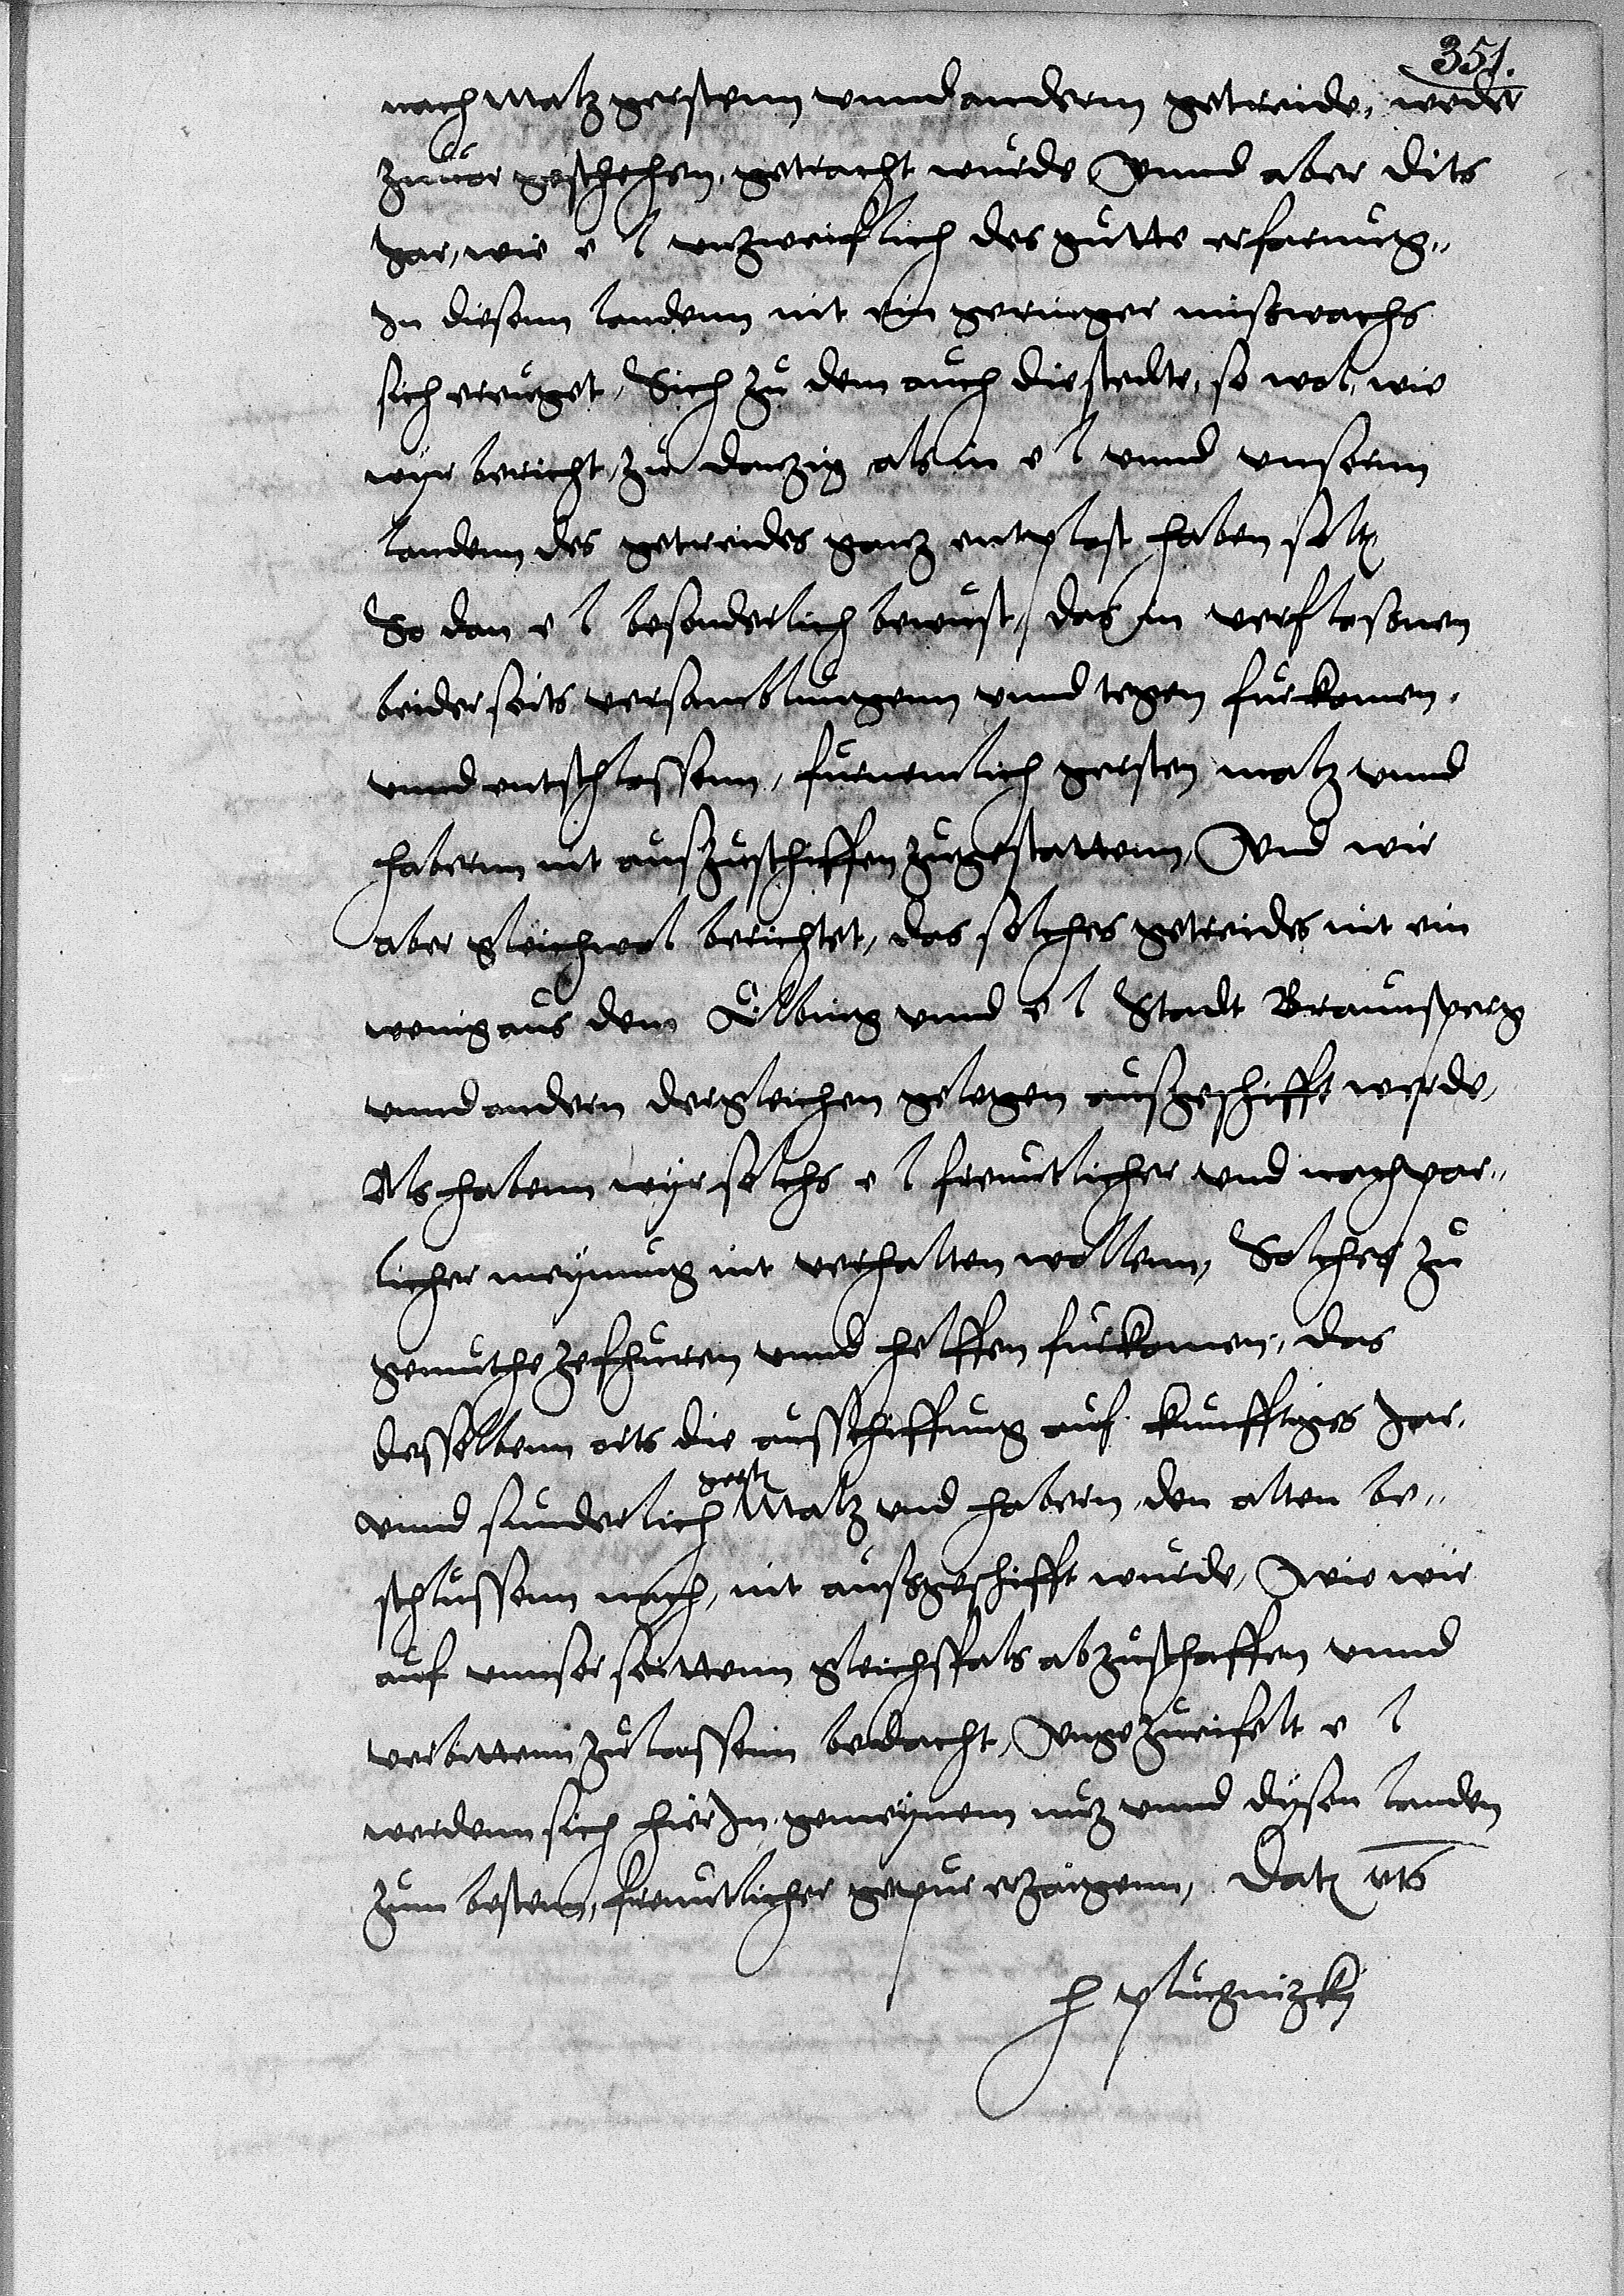 351.
nach Maltz gerstenn vnnd anderm getreide, weder
zuuor geschehen, getracht wurde Vnnd aber dits
Jar, wie e l vnzweiflich des gutte erfarung,,
In diesenn landenn nit ein geringer miswachs
sich ereuget, Sich zu dem auch die stedte, so wol, wie
wyr bericht, zu danzig als in e l vnnd vnsernn
landenn des getreides ganz entplost haben solt
So dan e l besonderlich bewust, das in verflossenen
beiderseits versamblungenn vnnd tegen furkomen.
vnnd entschlossenn, furnemlich gersten malz vnnd
habernn nit auszuschiffen zugestattenn, Vnd wir
aber gleichwol berichtet, das solches getreides nit ein
wenig aus dem Elbing vnnd e l Stadt Braunsperg
vnnd andern dergleichen gelegen außgeschifft werde,
Als habenn wyr solchs e l freuntlicher vnd nachpar,,
licher meynung nit verhalten wollenn, Solches zu
gemuthe zefhuren vnnd helffen furkomen, das
desselbenn orts die ausschiffung auf kunfftiges Jar.
vnnd sunderlich gerst Maltz vnd habern, den alten be,,
schlussenn nach, nit außgeschifft wurde, Wie wir
auf vnnser seittenn gleichsfals abzuschaffen vnnd
verbittenn zulassenn bedacht, Vngezweifelt e l
werdenn sich hierIn gemeynem nuz vnnd dysen landen
zum bestenn, freuntlicher gepur erzaigenn, Dat vts
H pluchnizky